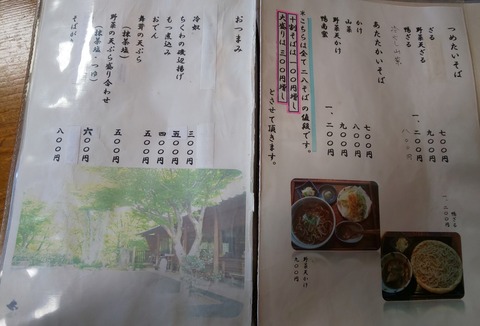 つめたいそば
ざる 七〇〇円
野菜天ざる 九〇〇円
鴨ざる 一、二〇〇円
あたたかいそば
かけ 七〇〇円
山菜 八〇〇円
野菜天かけ 九〇〇円
鴨南蛮 一、二〇〇円
＊こちらは全て二八そばの値段です。
十割そばは一〇〇円増し
大盛りは三〇〇円増し
とさせて頂きます。
鴨ざる
一、二〇〇円
野菜天かけ
九〇〇円
おつまみ
冷奴 三〇〇円
ちくわの磯辺揚げ 五〇〇円
もつ煮込み 四〇〇円
おでん 五〇〇円
舞茸の天ぷら 五〇〇円
（抹茶塩）
野菜の天ぷら盛り合わせ 六〇〇円
（抹茶塩・つゆ）
そばがき 八〇〇円